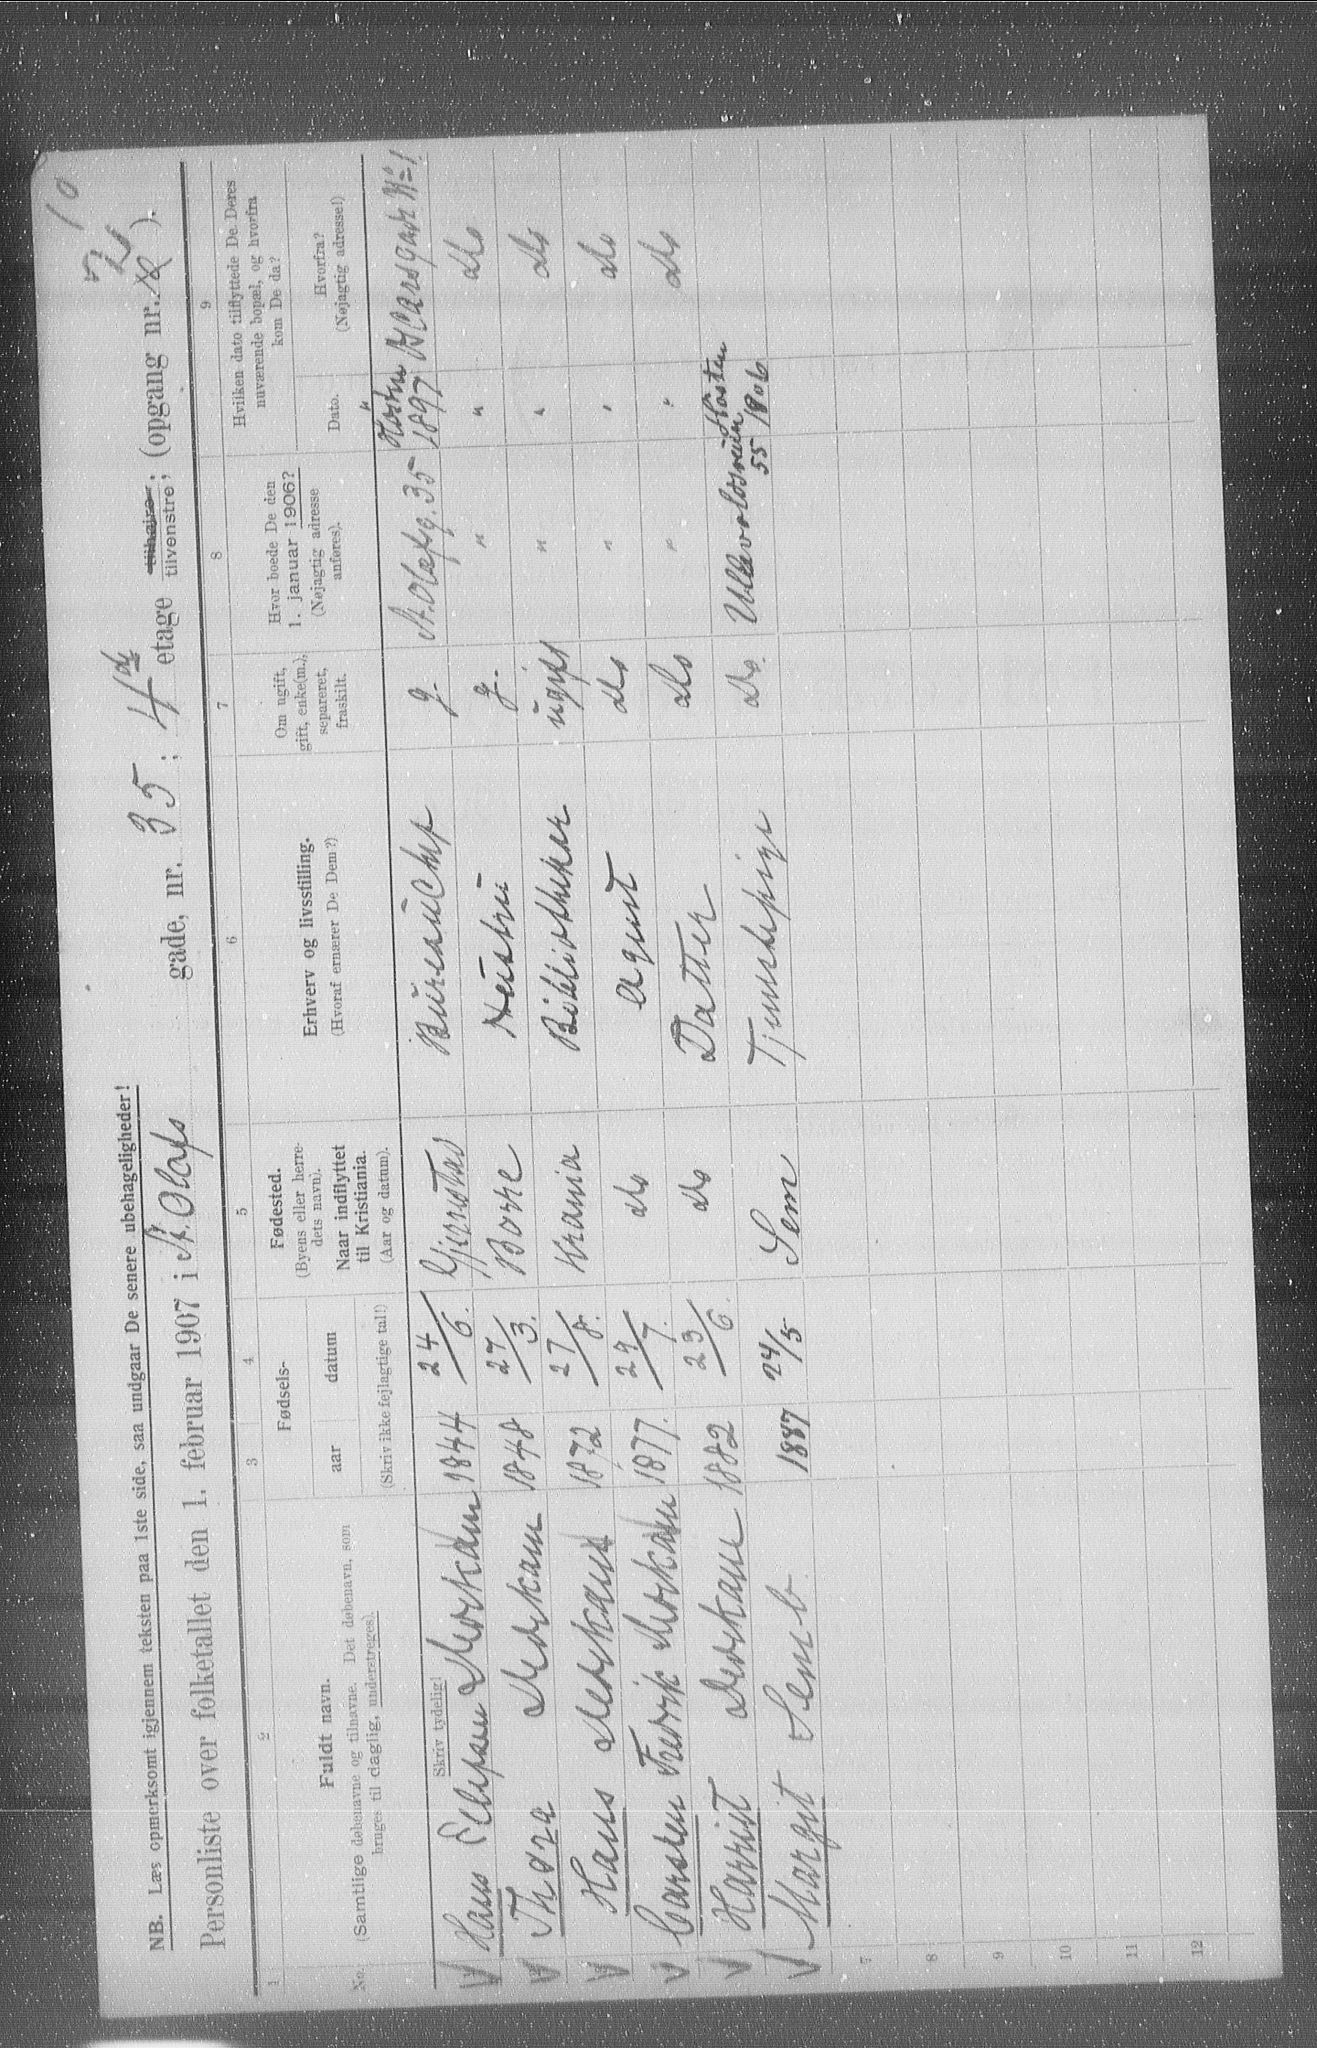 10
52
NB. Læs opmerksomt igjennem teksten paa 1ste side, saa undgaar De senere ubehageligheder!
Personliste over folketallet den 1. februar 1907 i St. Olafs gade, nr. 35; 4de etage tilhøire, tilvenstre; (opgang nr. ).
1 2 3 4 5 6 7 8 9
No.
Fuldt navn.
(Samtlige døbenavne og tilnavne. Det døbenavn, som
bruges til daglig, understreges).
Fødsels-
aar datum
(Skriv ikke feilagtige tal!)
Fødested.
(Byens eller herre-
dets navn).
Naar indflyttet
til Kristiania.
(Aar og datum).
Erhverv og livsstilling.
(Hvoraf ernærer De Dem?)
Om ugift,
gift, enke(m.),
separeret,
fraskilt.
Hvor boede De den
1. januar 1906?
(Nøjagtig adresse
anføres).
Hvilken dato tilflyttede De Deres
nuværende bopæl, og hvorfra
kom De da?
Dato.
Hvorfra?
(Nøjagtig adresse!)
Skriv tydelig!
Hans Ellefsen 1844 24/6. Bureauchef g. St. Olafsg. 35 Høsten 1897 Oscarsgade No 1
Thora 1848 27/3. Borre Hustru g. " " do
Hans 1872 27/8. Krania Bibliotheker ugift " " do
Carsten Fredrik 1877. 29/7. do Agent do " " do
Harriet 1882 23/6. do Datter do " " do
Margit Semb 1887 24/5 Sem Tjenestepige do. Ullevoldsveien 55 Høsten 1906
7
8
9
10
11
12